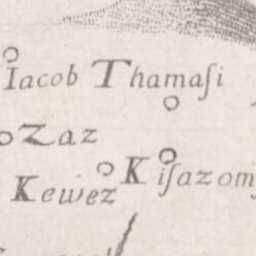 Iacob Thamaſi
Zaz
Kiſazom
Kewez